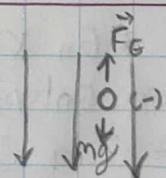 F⃗_E
(-)
mg⃗